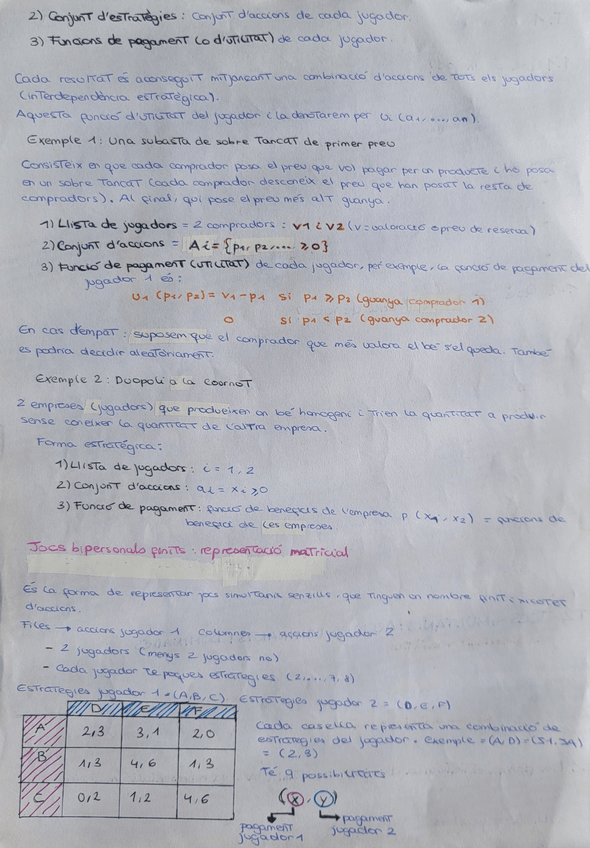 2) Conjunt d'estratègies: Conjunt d'accions de cada jugador.
3) Funcions de pagament (o d'utilitat) de cada jugador.
Cada resultat és aconseguit mitjançant una combinació d'accions de tots els jugadors
(interdependència estratègica).
Aquesta funció d'utilitat del jugador i la denotarem per Ui (a1, ..., an).
Exemple 1: Una subasta de sobre tancat de primer preu
Consisteix en que cada comprador posa el preu que vol pagar per un producte i ho posa
en un sobre tancat (cada comprador desconeix el preu que han posat la resta de
compradors). Al final, qui pose el preu més alt guanya.
1) Llista de jugadors = 2 compradors: v1 i v2 (v = valoració o preu de reserva)
2) Conjunt d'accions = Ai = {p1, p2, ... ≥ 0}
3) Funció de pagament (utilitat) de cada jugador, per exemple, la funció de pagament del
jugador 1 és:
U1 (p1, p2) = v1 - p1 si p1 ≥ p2 (guanya comprador 1)
0 si p1 < p2 (guanya comprador 2)
En cas d'empat: suposem que el comprador que més valora el bé s'el queda. També
es podria decidir aleatòriament.
Exemple 2: Duopoli a la Cournot
2 empreses (jugadors) que produeixen un bé homogeni i trien la quantitat a produir
sense conèixer la quantitat de l'altra empresa.
Forma estratègica:
1) Llista de jugadors: i = 1, 2
2) Conjunt d'accions: ai = xi ≥ 0
3) Funció de pagament: funció de beneficis de l'empresa p (x1, x2) = funcions de
benefici de les empreses.
Jocs bipersonals finits: representació matricial
És la forma de representar jocs simultanis senzills, que tinguen un nombre finit i xicotet
d'accions.
Files → accions jugador 1 Columnes → accions jugador 2
- 2 jugadors (menys 2 jugadors no)
- Cada jugador té poques estratègies (2, ..., 7, 8)
Estratègies jugador 1 = (A, B, C) Estratègies jugador 2 = (D, E, F)
D E F
A 2,3 3,1 2,0
B 1,3 4,6 1,3
C 0,2 1,2 4,6
Cada casella representa una combinació de
estratègies del jugador. Exemple = (A, D) = (S1, )
= (2, 3)
Té 9 possibilitats
(x, y)
pagament
jugador 1
pagament
jugador 2